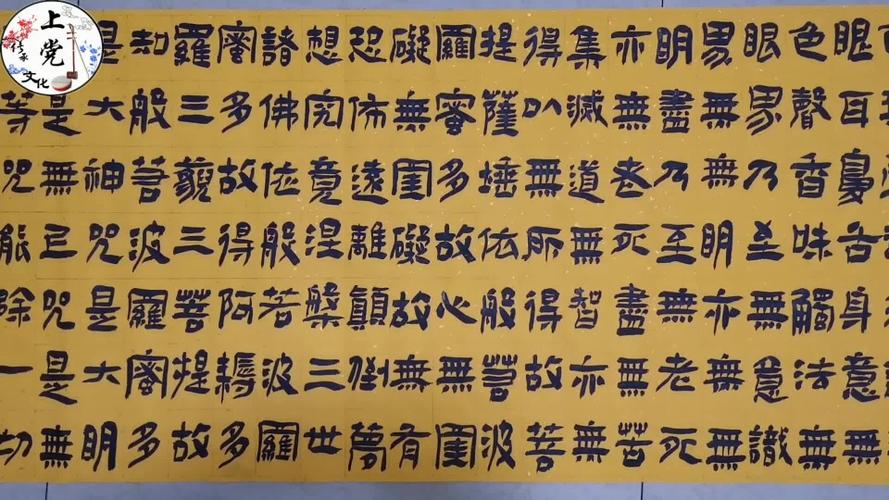 眼耳鼻舌身意無
色聲香味觸法無
眼界乃至無意識
界無無明亦無無
明盡乃至無老死
亦無老死盡無苦
集滅道無智亦無
得以無所得故菩
提薩埵依般若波
羅蜜多故心無罣
礙無罣礙故無有
恐怖遠離顛倒夢
想究竟涅槃三世
諸佛依般若波羅
蜜多故得阿耨多
羅三藐三菩提故
知般若波羅蜜多
是大神咒是大明
是無上咒是無
等咒能除一切
上党
传承
文化